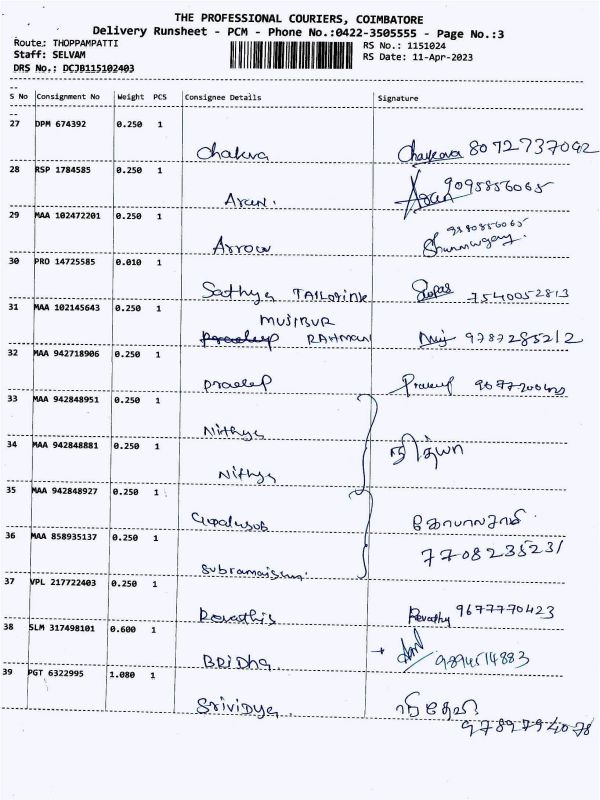 THE PROFESSIONAL COURIERS, COIMBATORE
Delivery Runsheet - PCM - Phone No.:0422-3505555 - Page No.:3
Route: THOPPAMPATTI
RS No.: 1151024
Staff: SELVAM
RS Date: 11-Apr-2023
DRS No.: DCJB115102403
S No Consignment No Weight PCS Consignee Details Signature
27 DPM 674392 0.250 1
Chakra 8072737042
28 RSP 1784585 0.250 1
Arun. Arun 9095856065
29 MAA 102472201 0.250 1
Arrow Shanmugam
30 PRO 14725585 0.010 1
Sathya TAILORING 7540052813
31 MAA 102145643 0.250 1
MUJIBUR
RAHMAN Muj 9787285212
32 MAA 942718906 0.250 1
pradeep
33 MAA 942848951 0.250 1
Nithya
34 MAA 942848881 0.250 1
Nithya நித்யா
35 MAA 942848927 0.250 1
கோபாலசாமி
36 MAA 858935137 0.250 1
7708235231
37 VPL 217722403 0.250 1
Revathy 9677770423
38 SLM 317498101 0.600 1
39 PGT 6322995 1.080 1
Srividya. ஸ்ரீதேவி
9789794078